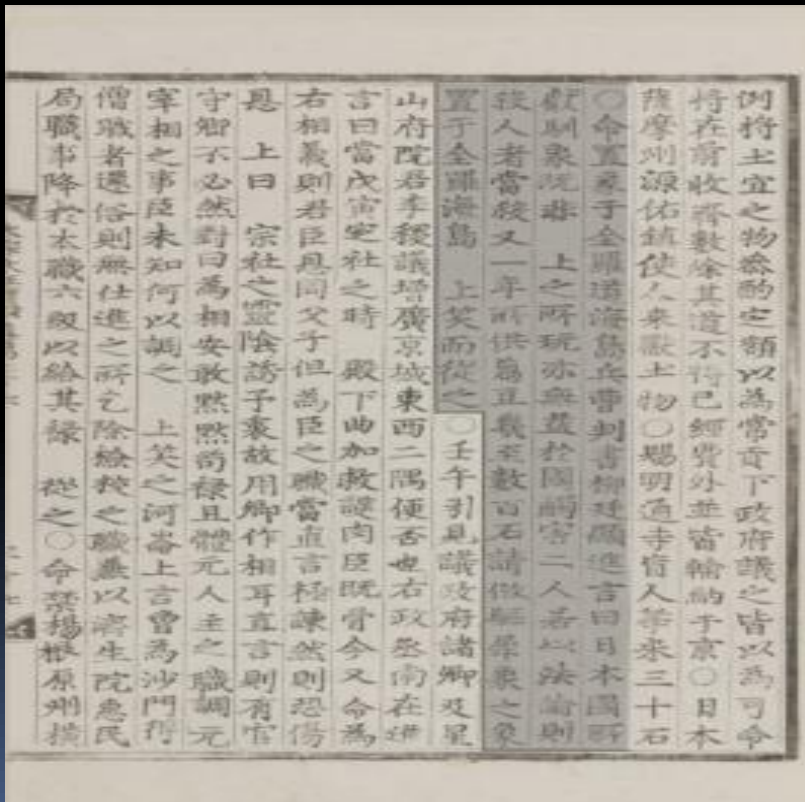 例將土宜之物參酌定額以為常貢下政府議之皆以為可命
將在前收齊數除其道不得已經費外並皆輸納于京〇日本
薩摩州源佑鎮使人來獻土物〇賜明通寺盲人等米三十石
〇命置象于全羅道海島兵曹判書柳廷顯進言曰日本國所
獻馴象既非 上之所玩亦無益於國觸害二人若以法論則
殺人者當殺又一年所供芻豆幾至數百石請倣驅犀象之事
置于全羅海島 上笑而從之〇壬午引見議政府諸卿及星
山府院君李稷議增廣京城東西二隅便否也右政丞南在進
言曰當戊寅定社之時 殿下曲加救護肉臣既骨今又命為
右相義則君臣恩同父子但為臣之職當直言極諫然則恐傷
恩 上曰 宗社之靈陰誘予衷故用卿作相耳直言則有官
守卿不必然對曰為相安敢黙黙苟祿且體元人主之職調元
宰相之事臣未知何以調之 上笑之河崙上言曾為沙門得
僧職者還俗則無仕進之所乞除檢校之職兼以濟生院惠民
局職事降於本職六級以給其祿 從之〇命禁楊根原州橫